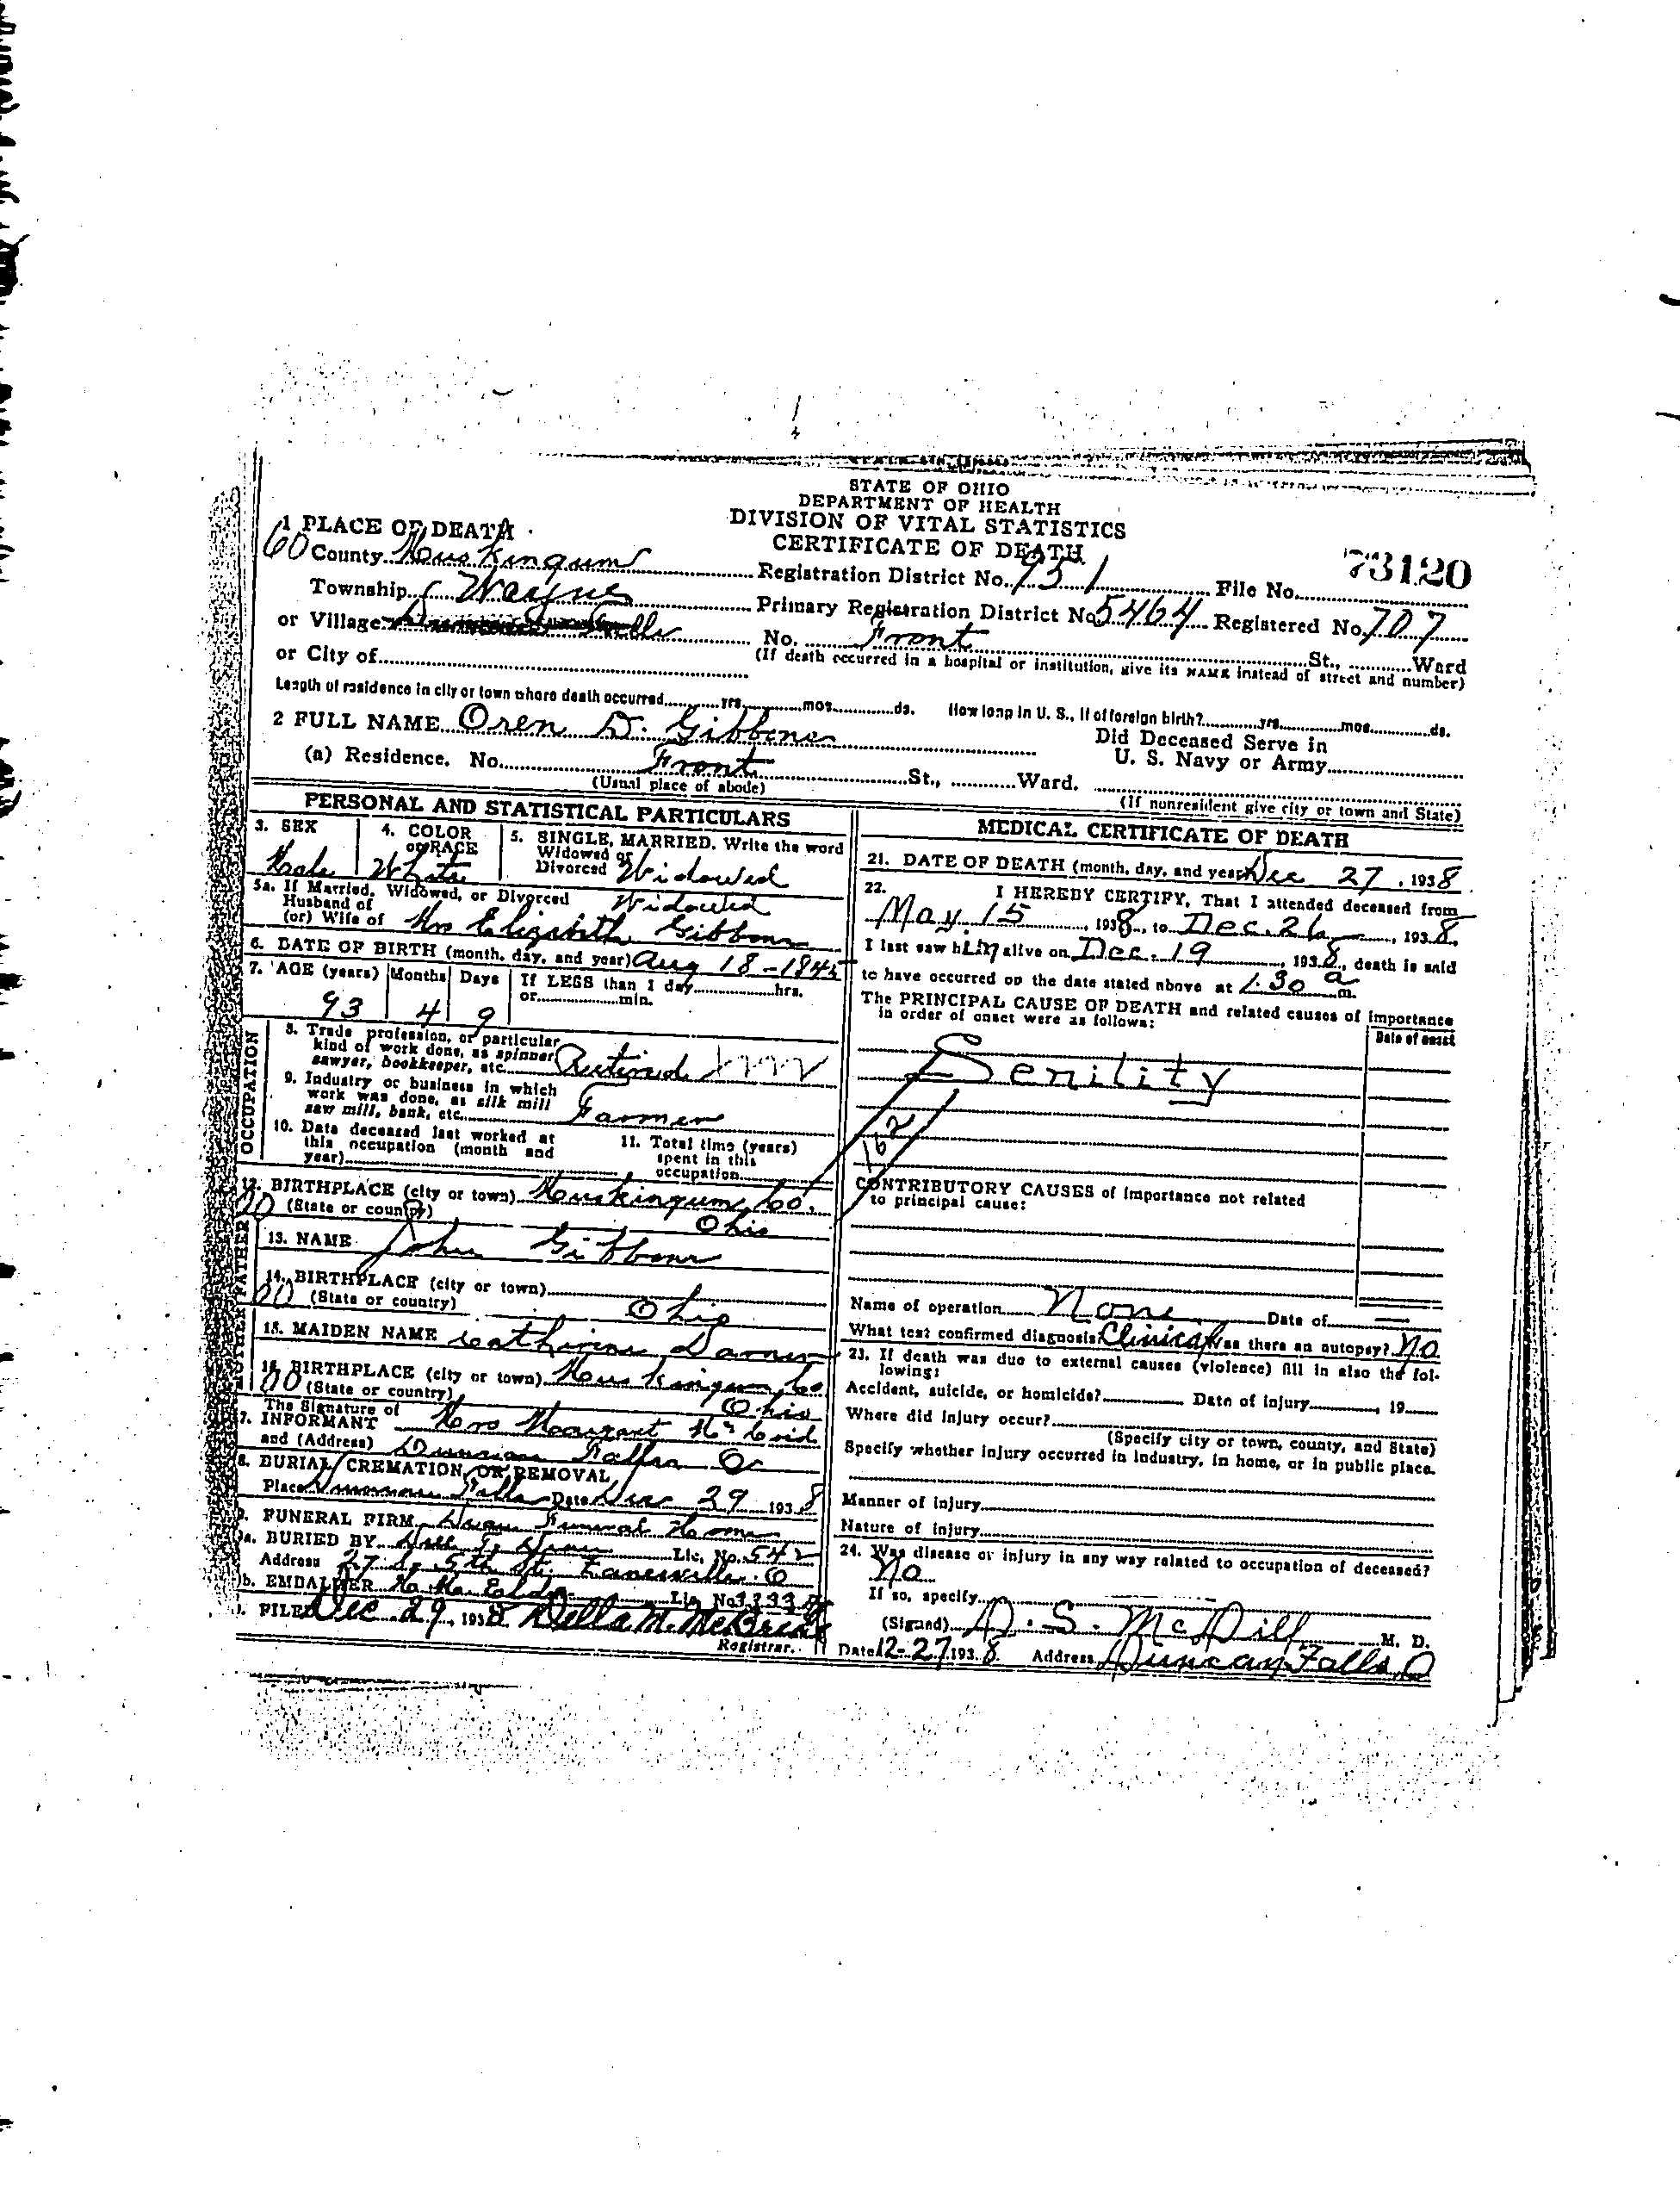 STATE OF OHIO
DEPARTMENT OF HEALTH
DIVISION OF VITAL STATISTICS
CERTIFICATE OF DEATH
1 PLACE OF DEATH
60 County Muskingum Registration District No. 951 File No. 73120
Township Wayne Primary Registration District No. 5464 Registered No. 707
or Village No. Front St., Ward
or City of (If death occurred in a hospital or institution, give its NAME instead of street and number)
Length of residence in city or town where death occurred yrs. mos. ds. How long in U. S., if of foreign birth? yrs. mos. ds.
2 FULL NAME Oren D. Gibbons Did Deceased Serve in
U. S. Navy or Army
(a) Residence. No. Front St., Ward.
(Usual place of abode) (If nonresident give city or town and State)
PERSONAL AND STATISTICAL PARTICULARS
3. SEX 4. COLOR or RACE 5. SINGLE, MARRIED, Write the word
Widowed or
Divorced Widowed
Male White
5a. If Married, Widowed, or Divorced Widowed
Husband of
(or) Wife of Mrs Elizabeth Gibbons
6. DATE OF BIRTH (month, day, and year) Aug 18 - 1845
7. AGE (years) Months Days If LESS than 1 day hrs.
or min.
93 4 9
OCCUPATION
8. Trade profession, or particular
kind of work done, as spinner
sawyer, bookkeeper, etc. Retired
9. Industry or business in which
work was done, as silk mill
saw mill, bank, etc. Farmer
10. Date deceased last worked at
this occupation (month and
year)
11. Total time (years)
spent in this
occupation
12. BIRTHPLACE (city or town) Muskingum Co.
(State or country) Ohio
FATHER
13. NAME John Gibbons
14. BIRTHPLACE (city or town)
(State or country) Ohio
15. MAIDEN NAME Catherine
16. BIRTHPLACE (city or town) Muskingum Co.
(State or country) Ohio
The Signature of
17. INFORMANT Mrs Margaret
and (Address) Duncan Falls O
8. BURIAL, CREMATION, OR REMOVAL
Place Duncan Falls Date Dec 29 1938
9. FUNERAL FIRM Funeral Home
a. BURIED BY Lic. No. 542
Address 27 S. 5th St. Zanesville O
b. EMBALMER Lic. No.
FILED Dec 29, 1938 Della M. McBride
Registrar.
MEDICAL CERTIFICATE OF DEATH
21. DATE OF DEATH (month, day, and year) Dec 27, 1938
22. I HEREBY CERTIFY, That I attended deceased from
May 15, 1938, to Dec. 26, 1938,
I last saw him alive on Dec. 19, 1938, death is said
to have occurred on the date stated above at 1.30 a m.
The PRINCIPAL CAUSE OF DEATH and related causes of importance
in order of onset were as follows:
Date of onset
Senility
162
CONTRIBUTORY CAUSES of importance not related
to principal cause:
Name of operation None Date of —
What test confirmed diagnosis? Clinical Was there an autopsy? No
23. If death was due to external causes (violence) fill in also the fol-
lowing:
Accident, suicide, or homicide? Date of injury , 19
Where did injury occur?
(Specify city or town, county, and State)
Specify whether injury occurred in industry, in home, or in public place.
Manner of injury
Nature of injury
24. Was disease or injury in any way related to occupation of deceased?
No
If so, specify
(Signed) D. S. McDill M. D.
Date 12-27 1938 Address Duncan Falls O